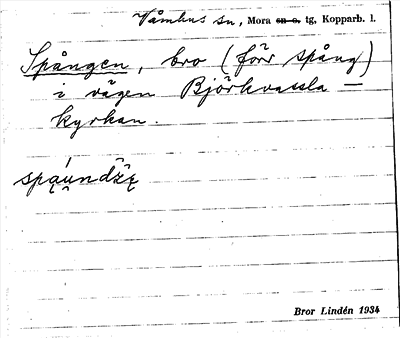 Våmhus sn, Mora sn o. tg, Kopparb. l.
Spången, bro (förr spång)
i vägen Björkvassla —
kyrkan.
Bror Lindén 1934